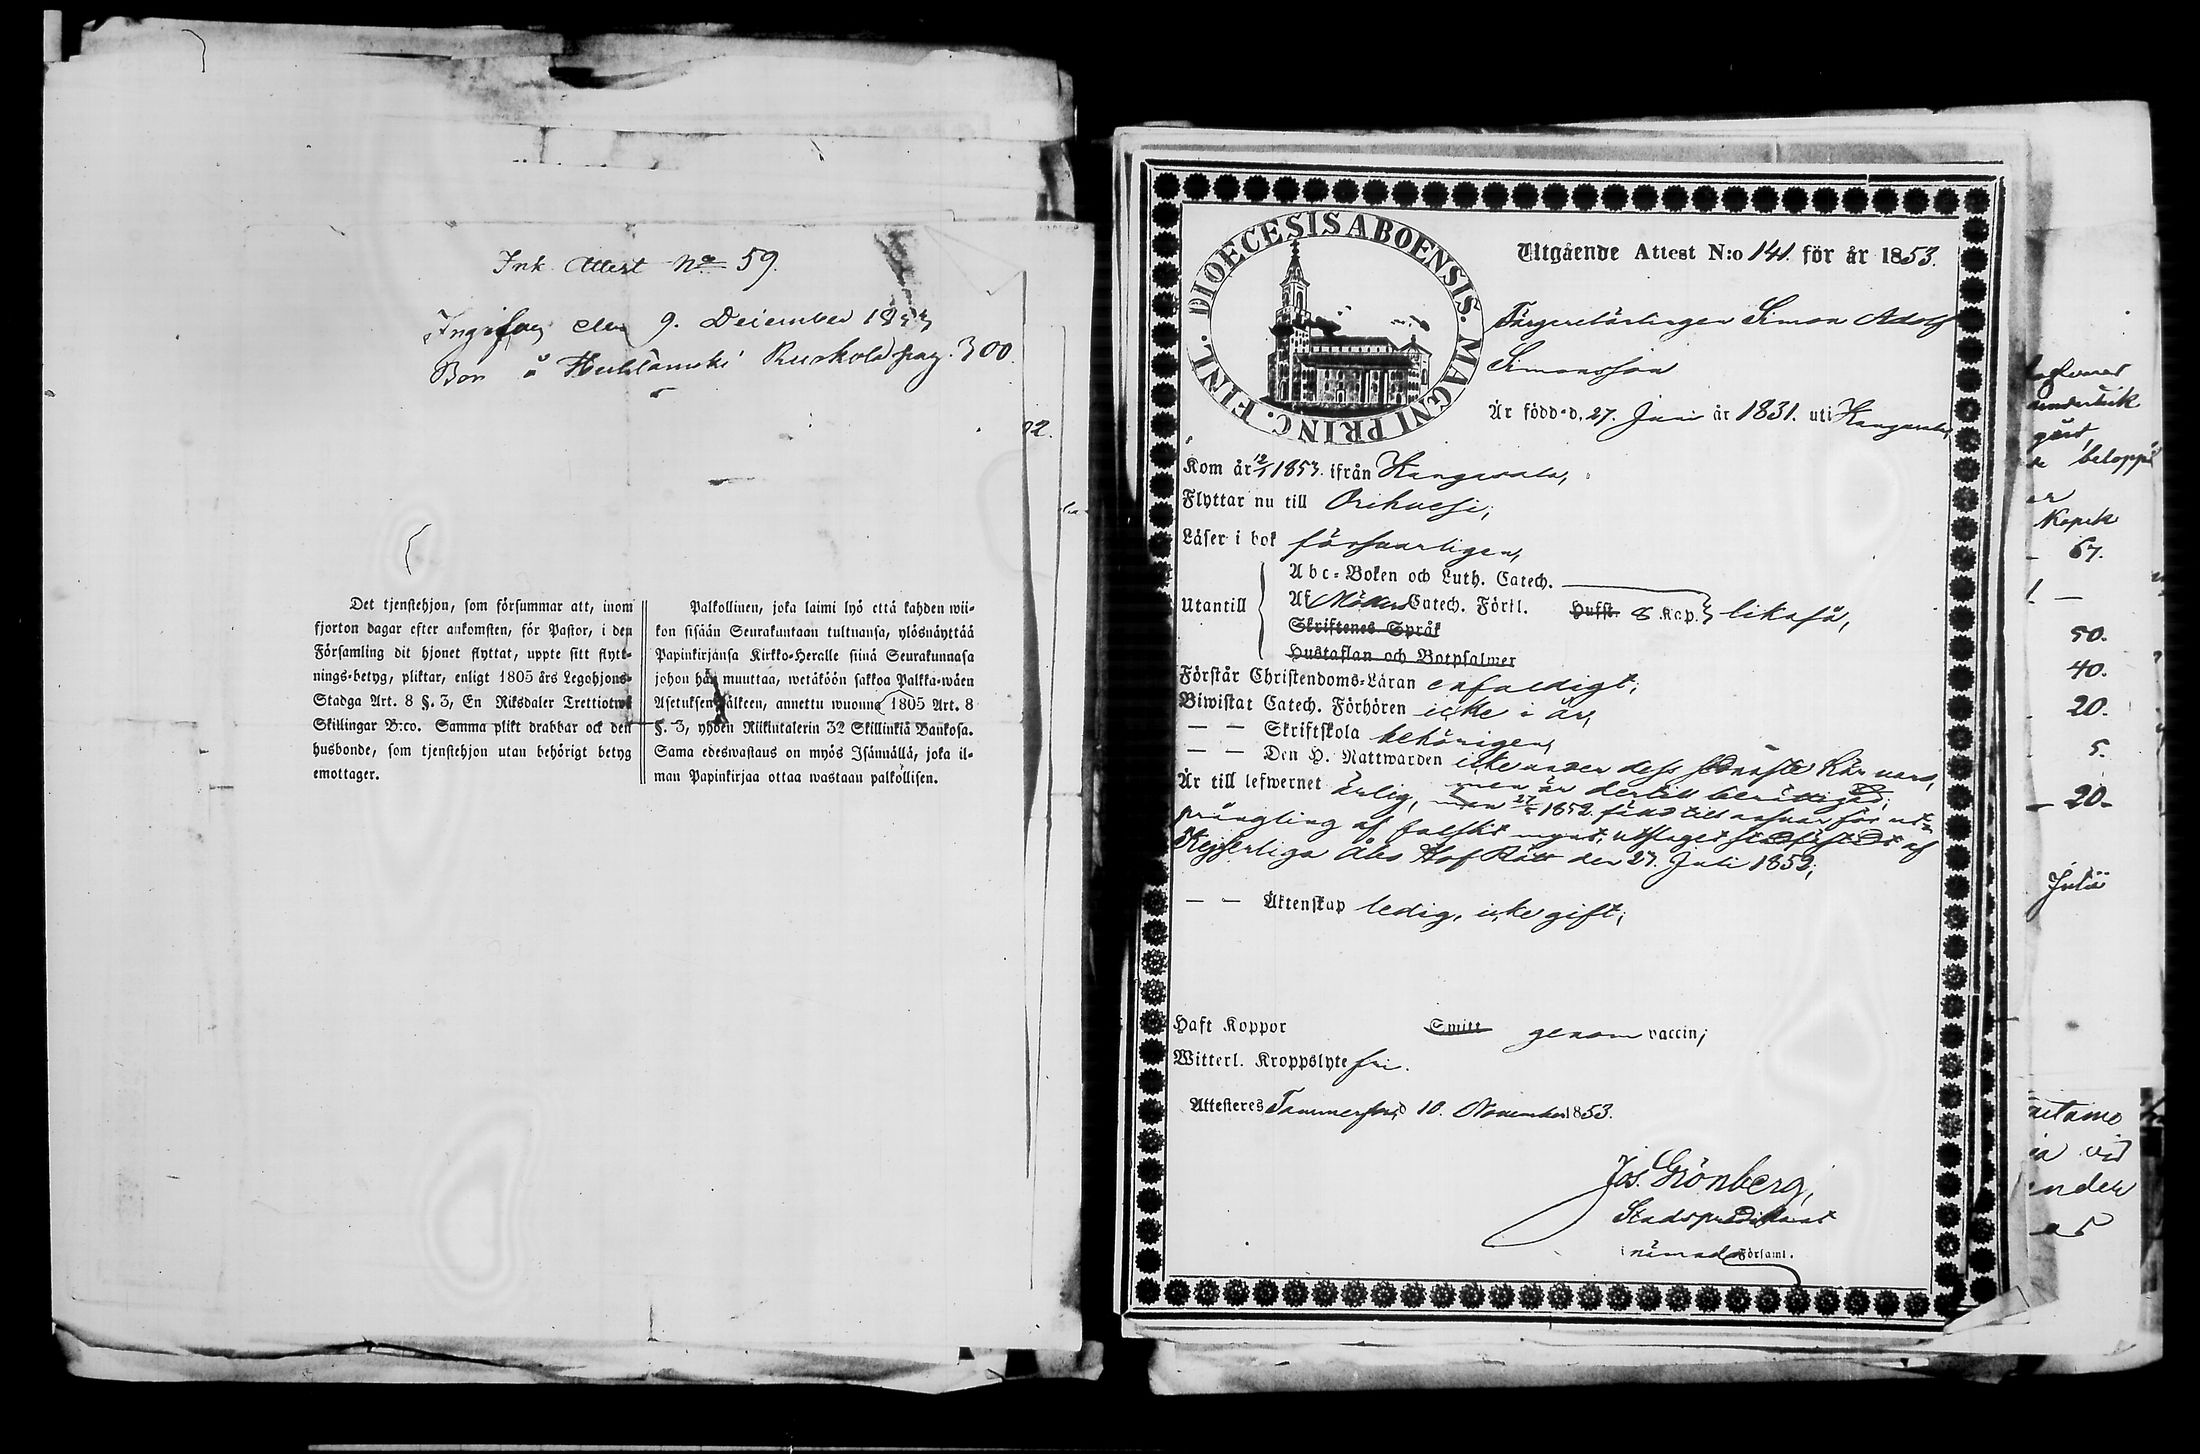 Ink. Attest No 59.
Ingifven den 9. December 1853
Bor å Ruskola pag. 300.
Det tjenstehjon, som försummar att, inom
fjorton dagar efter ankomsten, för Pastor, i den
Församling dit hjonet flyttat, uppte sitt flytt-
nings-betyg, pliktar, enligt 1805 års Legohjons-
Stadga Art. 8 §. 3, En Riksdaler Trettiotwå
Skillingar B:co. Samma plikt drabbar ock den
husbonde, som tjenstehjon utan behörigt betyg
emottager.
Palkollinen, joka laimi lyö että kahden wii-
kon sisään Seurakuntaan tultuansa, ylösnäyttää
Papinkirjänsä Kirkko-Heralle siinä Seurakunnasa
johon hän muuttaa, wetäköön sakkoa Palkka-wäen
Asetuksen jälkeen, annettu wuonna 1805 Art. 8
§. 3, yhden Riikintalerin 32 Skillinkiä Bankosa.
Sama edeswastaus on myös Isännällä, joka il-
man Papinkirjaa ottaa wastaan palkollisen.
92.
DIOECESIS ABOENSIS. MAGNI PRINC. FINL.
Utgående Attest N:o 141. för år 1853.
Färgerelärlingen Simon Adolf
Simonsson
Är född d. 27. Juni år 1831. uti Kangasala,
Kom år 1853. ifrån Kangasala,
Flyttar nu till Orihvesi,
Läser i bok försvarligen,
Utantill
Abc-Boken och Luth. Catech.
Af Möllers Catech. Förkl. Hufst. 8 Kap. likaså,
Skriftenes Språk
Hustaflan och Botpsalmer
Förstår Christendoms-Läran enfaldigt;
Biwistat Catech. Förhören icke i år,
— — Skriftskola behörigen,
— — Den H. Nattwarden icke under dess sednaste härvaro,
men är dertill berättigad;
Är till lefwernet ärlig, men 27/5 1852. fäld till ansvar för ut-
prångling af falskt mynt, utslaget stadfästadt af
Kejserliga Åbo Hof Rätt den 27. Juli 1852;
— — Äktenskap ledig, icke gift;
Haft Koppor Smitt genom vaccin;
Witterl. Kroppslyte fri.
Attesteres Tammerfors d 10. November 1853.
Jos. Grönberg,
Stadspredikant
i nämnde Församl.
beloppe
Kopek
67.
1 —
50.
40.
20.
5.
20.
Julii